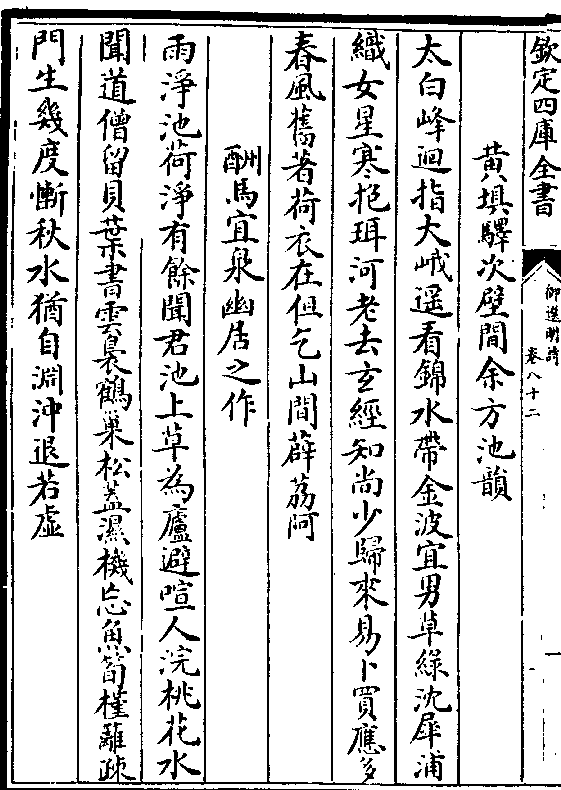 欽定四庫全書
御選明詩
卷八十二
黄塡驛次壁間余方池韻
太白峰迴指大峨遥看錦水帶金波宜男草緑沈犀浦
織女星寒抱珥河老去玄經知尚少歸來易卜買應多
春風舊著荷衣在但乞山間薜荔阿
酬馬宜泉幽居之作
雨淨池荷淨有餘聞君池上草為廬避喧人浣桃花水
聞道僧留貝葉書雲裊鶴巢松蓋濕機忘魚笱槿籬疎
門生幾度慚秋水猶自淵沖退若虚